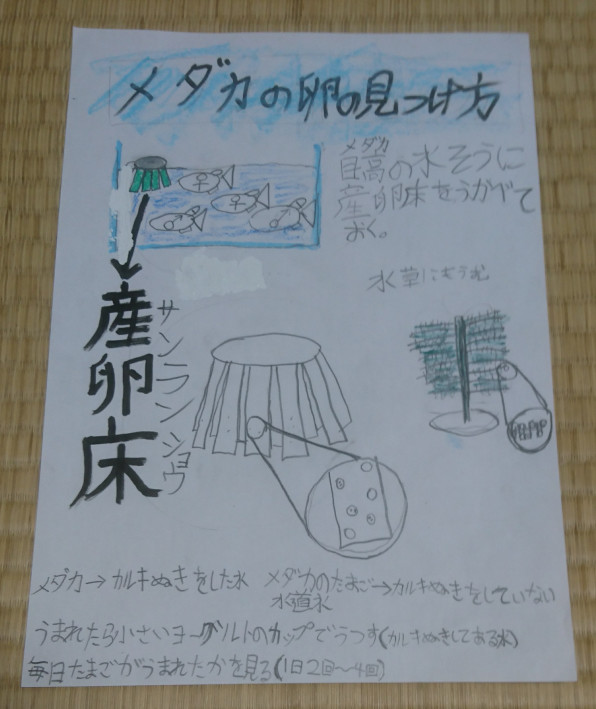 メダカの卵の見つけ方
メダカ
目高の水そうに
産卵床をうかべて
おく。
産卵床
サンランショウ
メダカ→カルキぬきをした水
メダカのたまご→カルキぬきをしていない
水道水
うまれたら小さいヨーグルトのカップでうつす(カルキぬきしてある水)
毎日たまごがうまれたかを見る(1日2回〜4回)